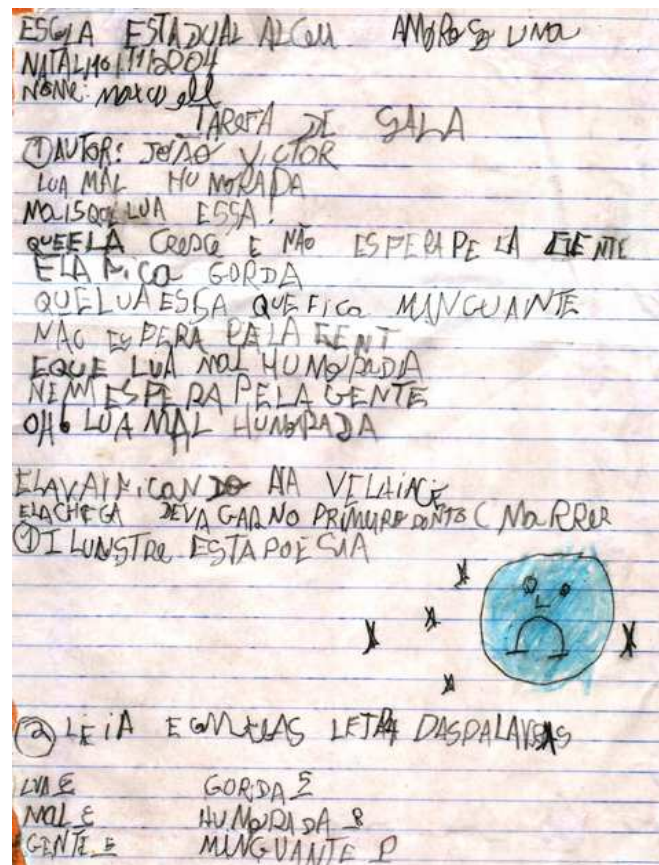 ESCLA ESTADUAL ALCEU AMOROSO LIMA
NATAL 16/11/2004
NOME: maxwell
TAREFA DE SALA
① AUTOR: JOÃO VICTOR
LUA MAL HUMORADA
MAIS QUE LUA ESSA!
QUE ELA CRESCE E NÃO ESPERA PE LA GENTE
ELA FICA GORDA
QUE LUA ESSA QUE FICA MINGUANTE
NÃO ESPERA PELA GENT
EQUE LUA MAL HUMORADA
NEM ESPERA PELA GENTE
OH. LUA MAL HUMORADA
ELA VAI FICANDO NA
ELA CHEGA DEVAGAR NO
① ILUNSTRE ESTA POESIA
② LEIA E AS LETRA DAS PALAVRAS
LUA GORDA
MAL HUMORADA 8
GENTE MINGUANTE